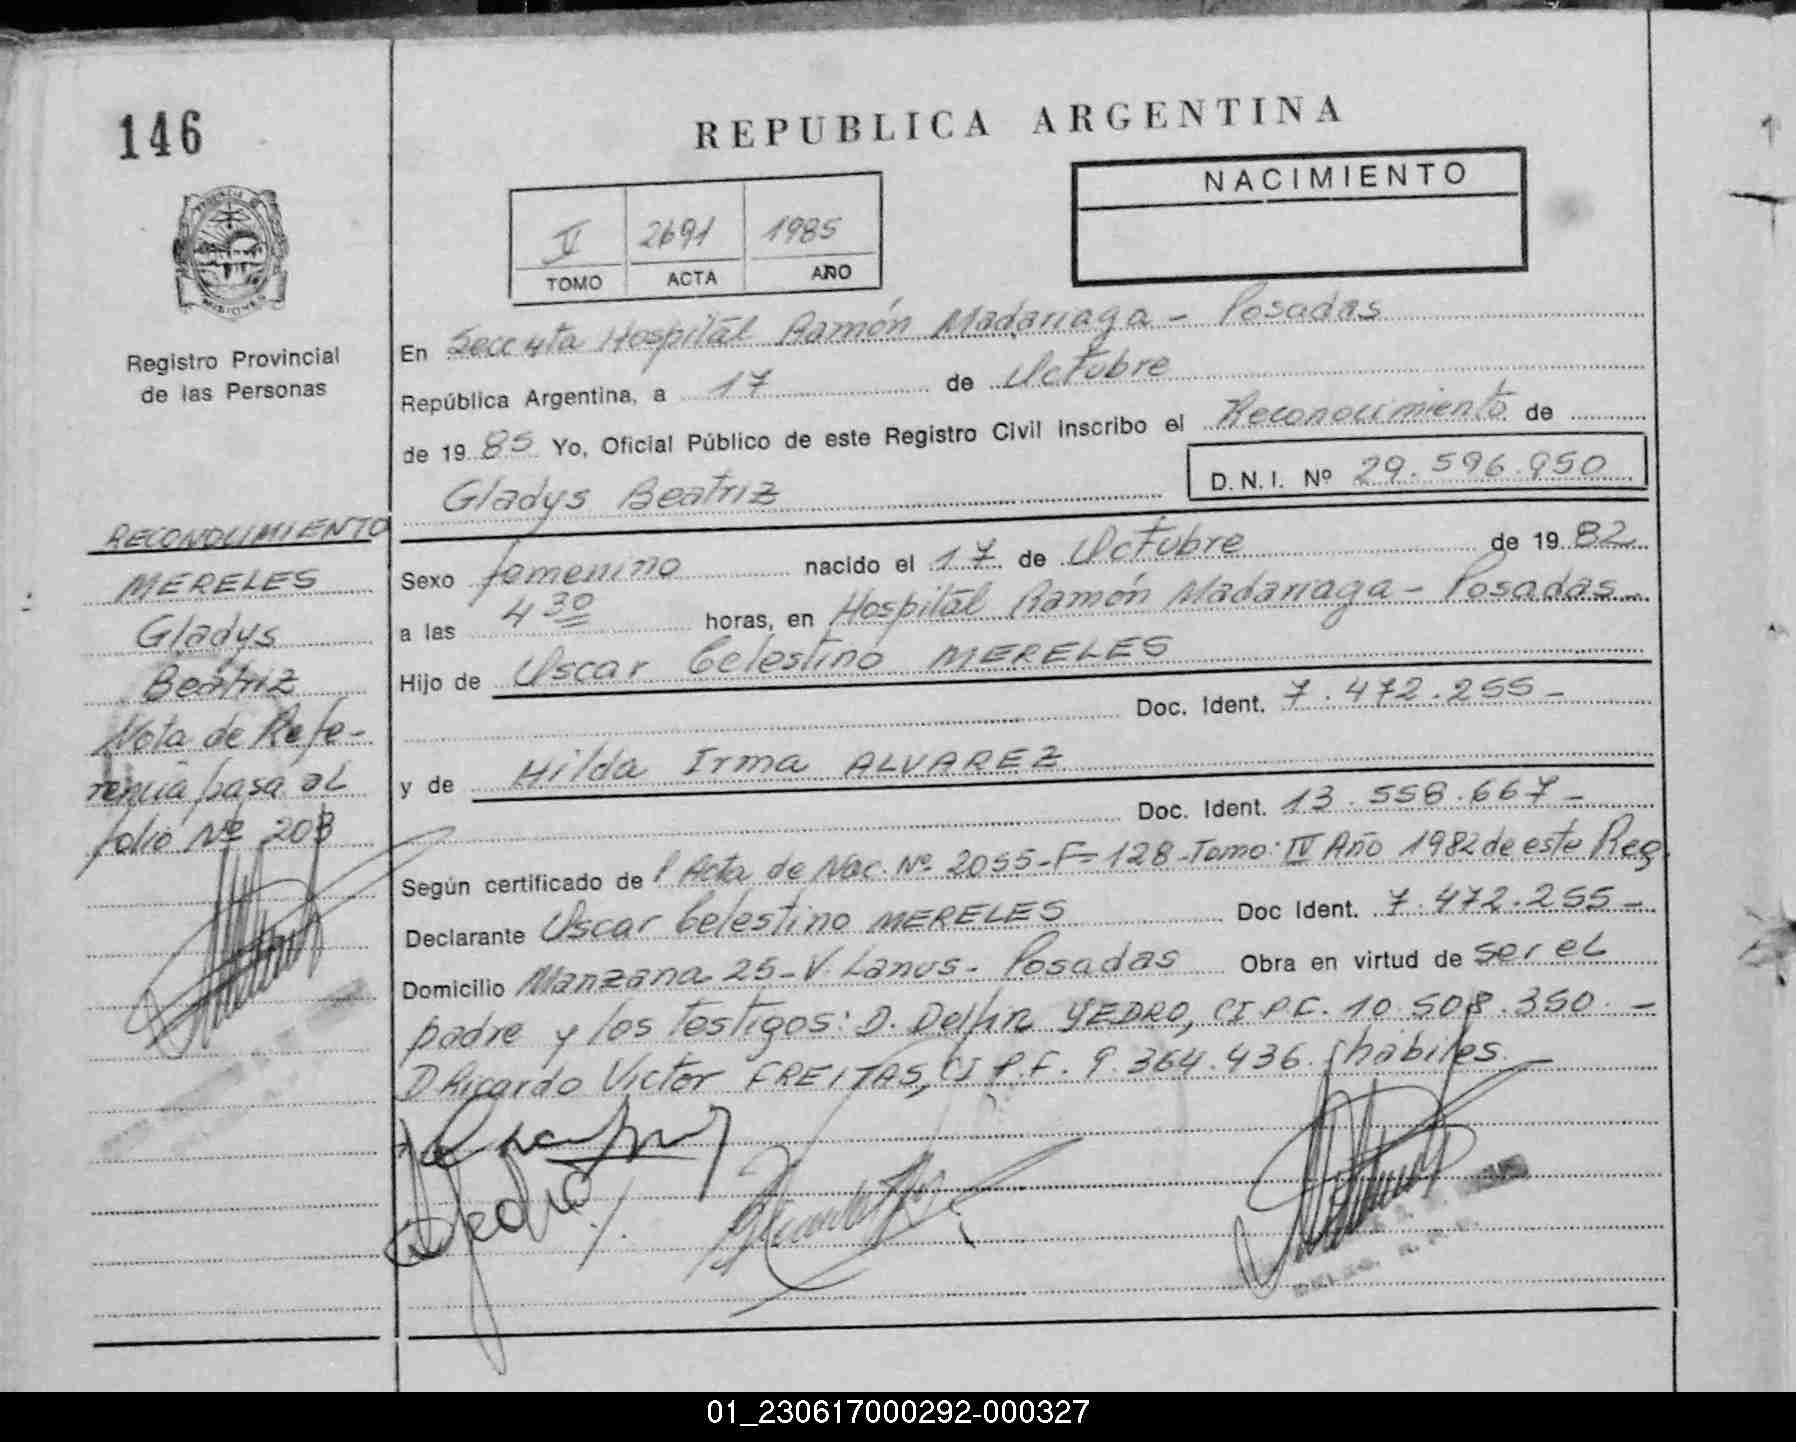 146
REPUBLICA ARGENTINA
NACIMIENTO
V 2691 1985
TOMO ACTA AÑO
PROVINCIA DE
MISIONES
Registro Provincial
de las Personas
En Secc 4ta Hospital Ramón Madariaga - Posadas
República Argentina, a 17 de Octubre
de 19 85 Yo, Oficial Público de este Registro Civil inscribo el Reconocimiento de
Gladys Beatriz D.N.I. Nº 29.596.950
Sexo femenino nacido el 17 de Octubre de 19 82
a las 4 30 horas, en Hospital Ramón Madariaga - Posadas
Hijo de Oscar Celestino MERELES
Doc. Ident. 7.472.255-
y de Hilda Irma ALVAREZ
Doc. Ident. 13.558.667-
Según certificado de P Acta de Nac. Nº 2055-F=128-Tomo: IV Año 1982 de este Reg.
Declarante Oscar Celestino MERELES Doc Ident. 7.472.255-
Domicilio Manzana 25-V. Lanus- Posadas Obra en virtud de ser el
padre y los testigos: D. Delfin YEDRO, CI P.F. 10.508.350.-
D Ricardo Victor FREITAS, CI P.F. 9.364.436. hábiles.
RECONOCIMIENTO
MERELES
Gladys
Beatriz
Nota de Refe-
rencia pasa al
folio Nº 203
01_230617000292-000327